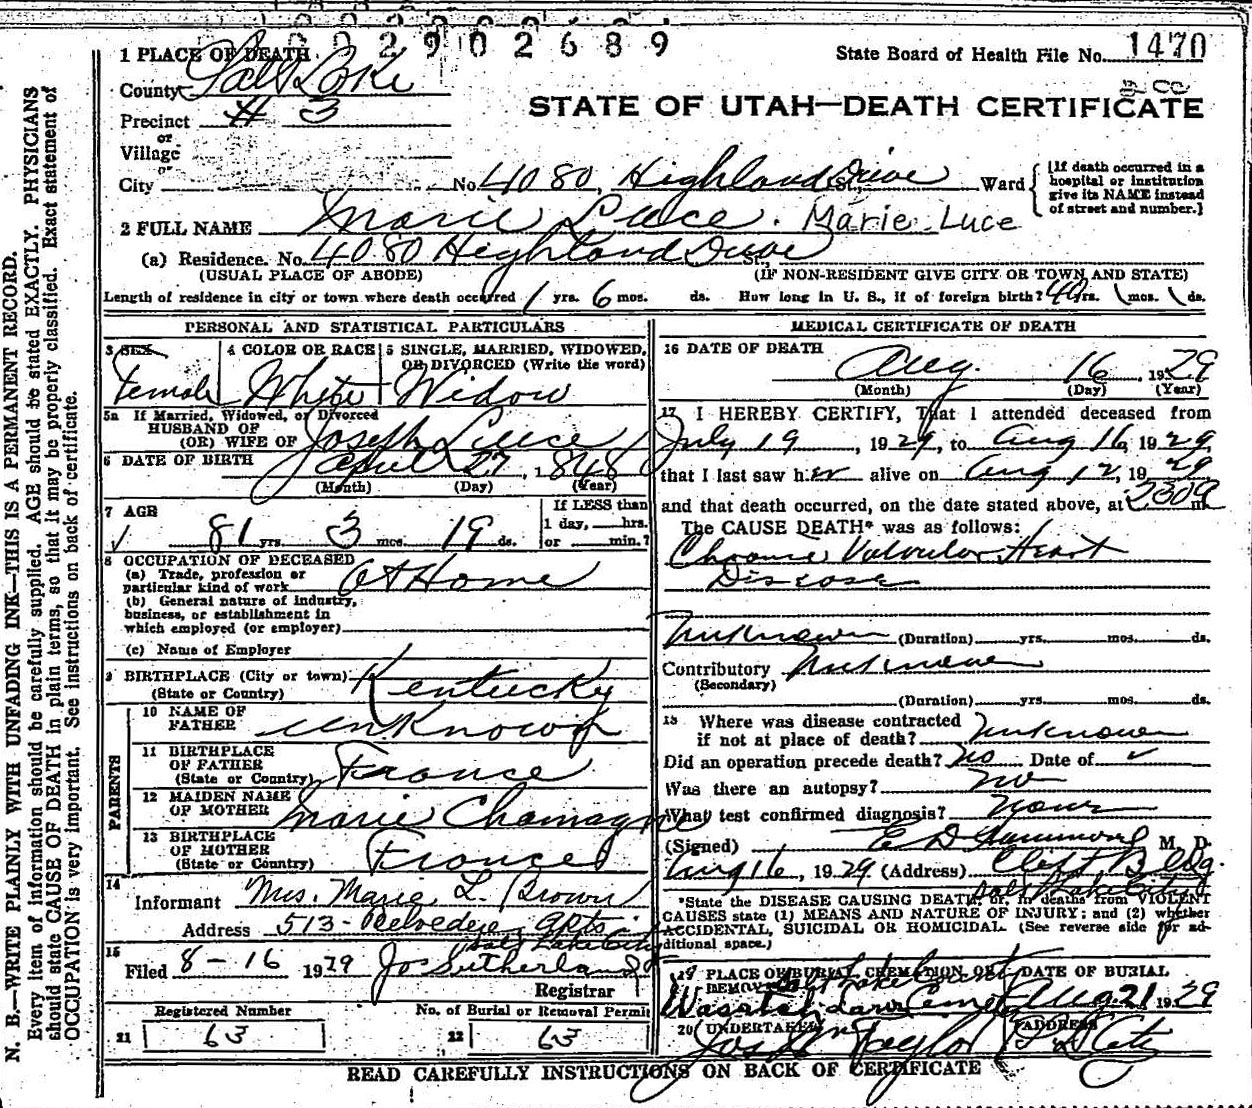 002902689
1 PLACE OF DEATH
State Board of Health File No. 1470
County Salt Lake
STATE OF UTAH—DEATH CERTIFICATE
Precinct # 3
or
Village
or
City No. 4080, Highland Drive St., Ward
[If death occurred in a hospital or institution give its NAME instead of street and number.]
2 FULL NAME Marie Luce. Marie Luce
(a) Residence. No. 4080 Highland Drive
(USUAL PLACE OF ABODE) (IF NON-RESIDENT GIVE CITY OR TOWN AND STATE)
Length of residence in city or town where death occurred 1 yrs. 6 mos. ds. How long in U. S., if of foreign birth? yrs. mos. ds.
PERSONAL AND STATISTICAL PARTICULARS
3 SEX
Female
4 COLOR OR RACE
White
5 SINGLE, MARRIED, WIDOWED, OR DIVORCED (Write the word)
Widow
5a If Married, Widowed, or Divorced
HUSBAND OF
(OR) WIFE OF Joseph Luce
6 DATE OF BIRTH April 27, 1848
(Month) (Day) (Year)
7 AGE
81 yrs. 3 mos. 19 ds.
If LESS than
1 day, hrs.
or min.?
8 OCCUPATION OF DECEASED
(a) Trade, profession or
particular kind of work At Home
(b) General nature of industry,
business, or establishment in
which employed (or employer)
(c) Name of Employer
9 BIRTHPLACE (City or town) Kentucky
(State or Country)
PARENTS
10 NAME OF
FATHER unknown
11 BIRTHPLACE
OF FATHER France
(State or Country)
12 MAIDEN NAME
OF MOTHER Marie Chamagne
13 BIRTHPLACE
OF MOTHER France
(State or Country)
14
Informant Mrs. Marie L. Brown
Address 513 - Belvedere Apts.
Salt Lake City
15
Filed 8-16 1929 Jos Sutherland
Registrar
Registered Number
21 63
No. of Burial or Removal Permit
22 63
MEDICAL CERTIFICATE OF DEATH
16 DATE OF DEATH
Aug. 16, 1929
(Month) (Day) (Year)
17 I HEREBY CERTIFY, That I attended deceased from
July 19, 1929, to Aug 16, 1929
that I last saw her alive on Aug 12, 1929
and that death occurred, on the date stated above, at m
The CAUSE DEATH* was as follows:
Chronic Valvular Heart
Disease
Unknown (Duration) yrs. mos. ds.
Contributory Unknown
(Secondary)
(Duration) yrs. mos. ds.
18 Where was disease contracted
if not at place of death? Unknown
Did an operation precede death? No Date of
Was there an autopsy? No
What test confirmed diagnosis? None
(Signed) E D M. D.
Aug 16, 1929 (Address) Clift Bldg.
Salt Lake City
*State the DISEASE CAUSING DEATH, or, in deaths from VIOLENT
CAUSES state (1) MEANS AND NATURE OF INJURY; and (2) whether
ACCIDENTAL, SUICIDAL OR HOMICIDAL. (See reverse side for ad-
ditional space.)
19 PLACE OF BURIAL, CREMATION OR REMOVAL
Salt Lake County
Wasatch Lawn Cemetery
DATE OF BURIAL
Aug. 21 1929
20 UNDERTAKER
Taylor
ADDRESS
S L City
READ CAREFULLY INSTRUCTIONS ON BACK OF CERTIFICATE
N. B.—WRITE PLAINLY WITH UNFADING INK—THIS IS A PERMANENT RECORD.
Every item of information should be carefully supplied. AGE should be stated EXACTLY. PHYSICIANS
should state CAUSE OF DEATH in plain terms, so that it may be properly classified. Exact statement of
OCCUPATION is very important. See instructions on back of certificate.